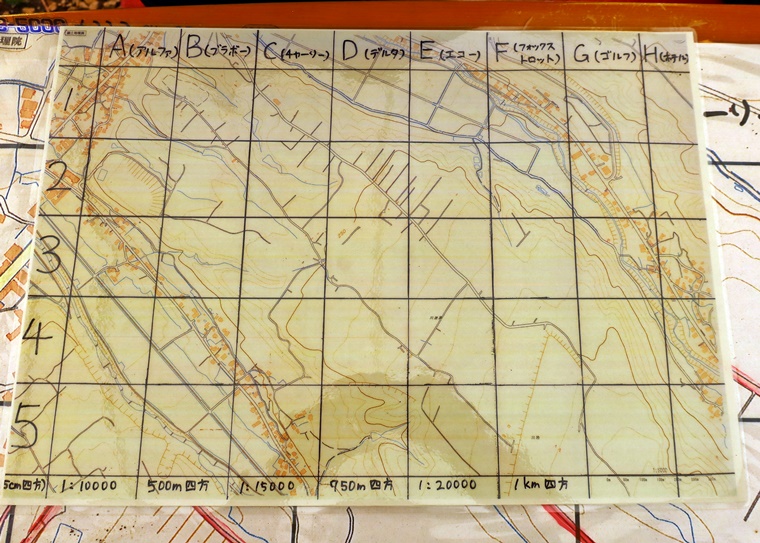 A(アルファ) B(ブラボー) C(チャーリー) D(デルタ) E(エコー) F(フォックストロット) G(ゴルフ) H(ホテル)
1
2
3
4
5
5cm四方) 1:10000 500m四方 1:15000 750m四方 1:20000 1km四方
理院
ーリ